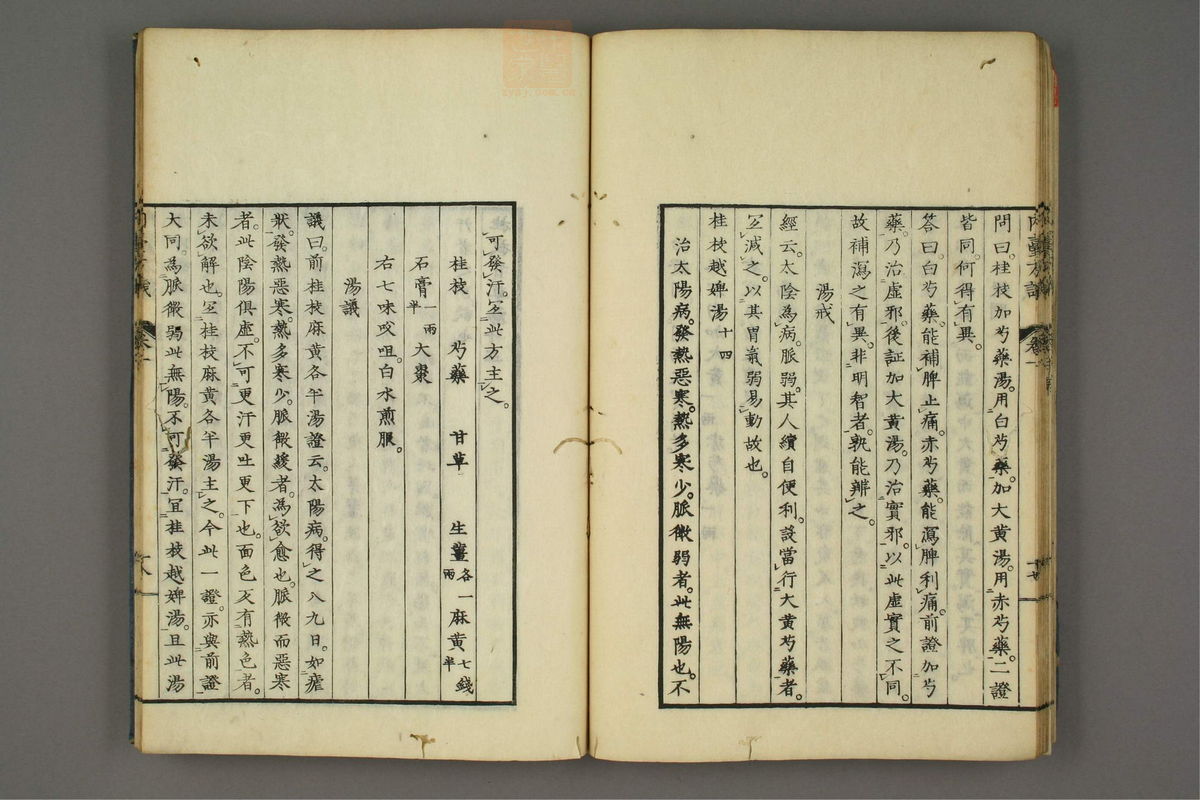 問曰。桂枝加芍藥湯。用白芍藥。加大黃湯。用赤芍藥。二證
皆同。何得有異。
答曰。白芍藥。能補脾止痛。赤芍藥。能瀉脾利痛。前證加芍
藥。乃治虛邪。後証加大黃湯。乃治實邪。以此虛實之不同。
故補瀉之有異。非明智者。孰能辨之。
湯戒
經云。太陰為病。脈弱。其人續自便利。設當行大黃芍藥者。
宜減之。以其胃氣弱易動故也。
桂枝越婢湯 十四
治太陽病。發熱惡寒。熱多寒少。脈微弱者。此無陽也。不
可發汗。宜此方主之。
桂枝 芍藥 甘草 生薑各一兩 麻黃七錢半
石膏一兩半 大棗
右七味㕮咀。白水煎服。
湯議
議曰。前桂枝麻黃各半湯證云。太陽病。得之八九日。如瘧
狀。發熱惡寒。熱多寒少。脈微緩者。為欲愈也。脈微而惡寒
者。此陰陽俱虛。不可更汗更吐更下也。面色反有熱色者。
未欲解也。宜桂枝麻黃各半湯主之。今此一證。亦與前證
大同。為脈微弱此無陽。不可發汗。宜桂枝越婢湯。且此湯